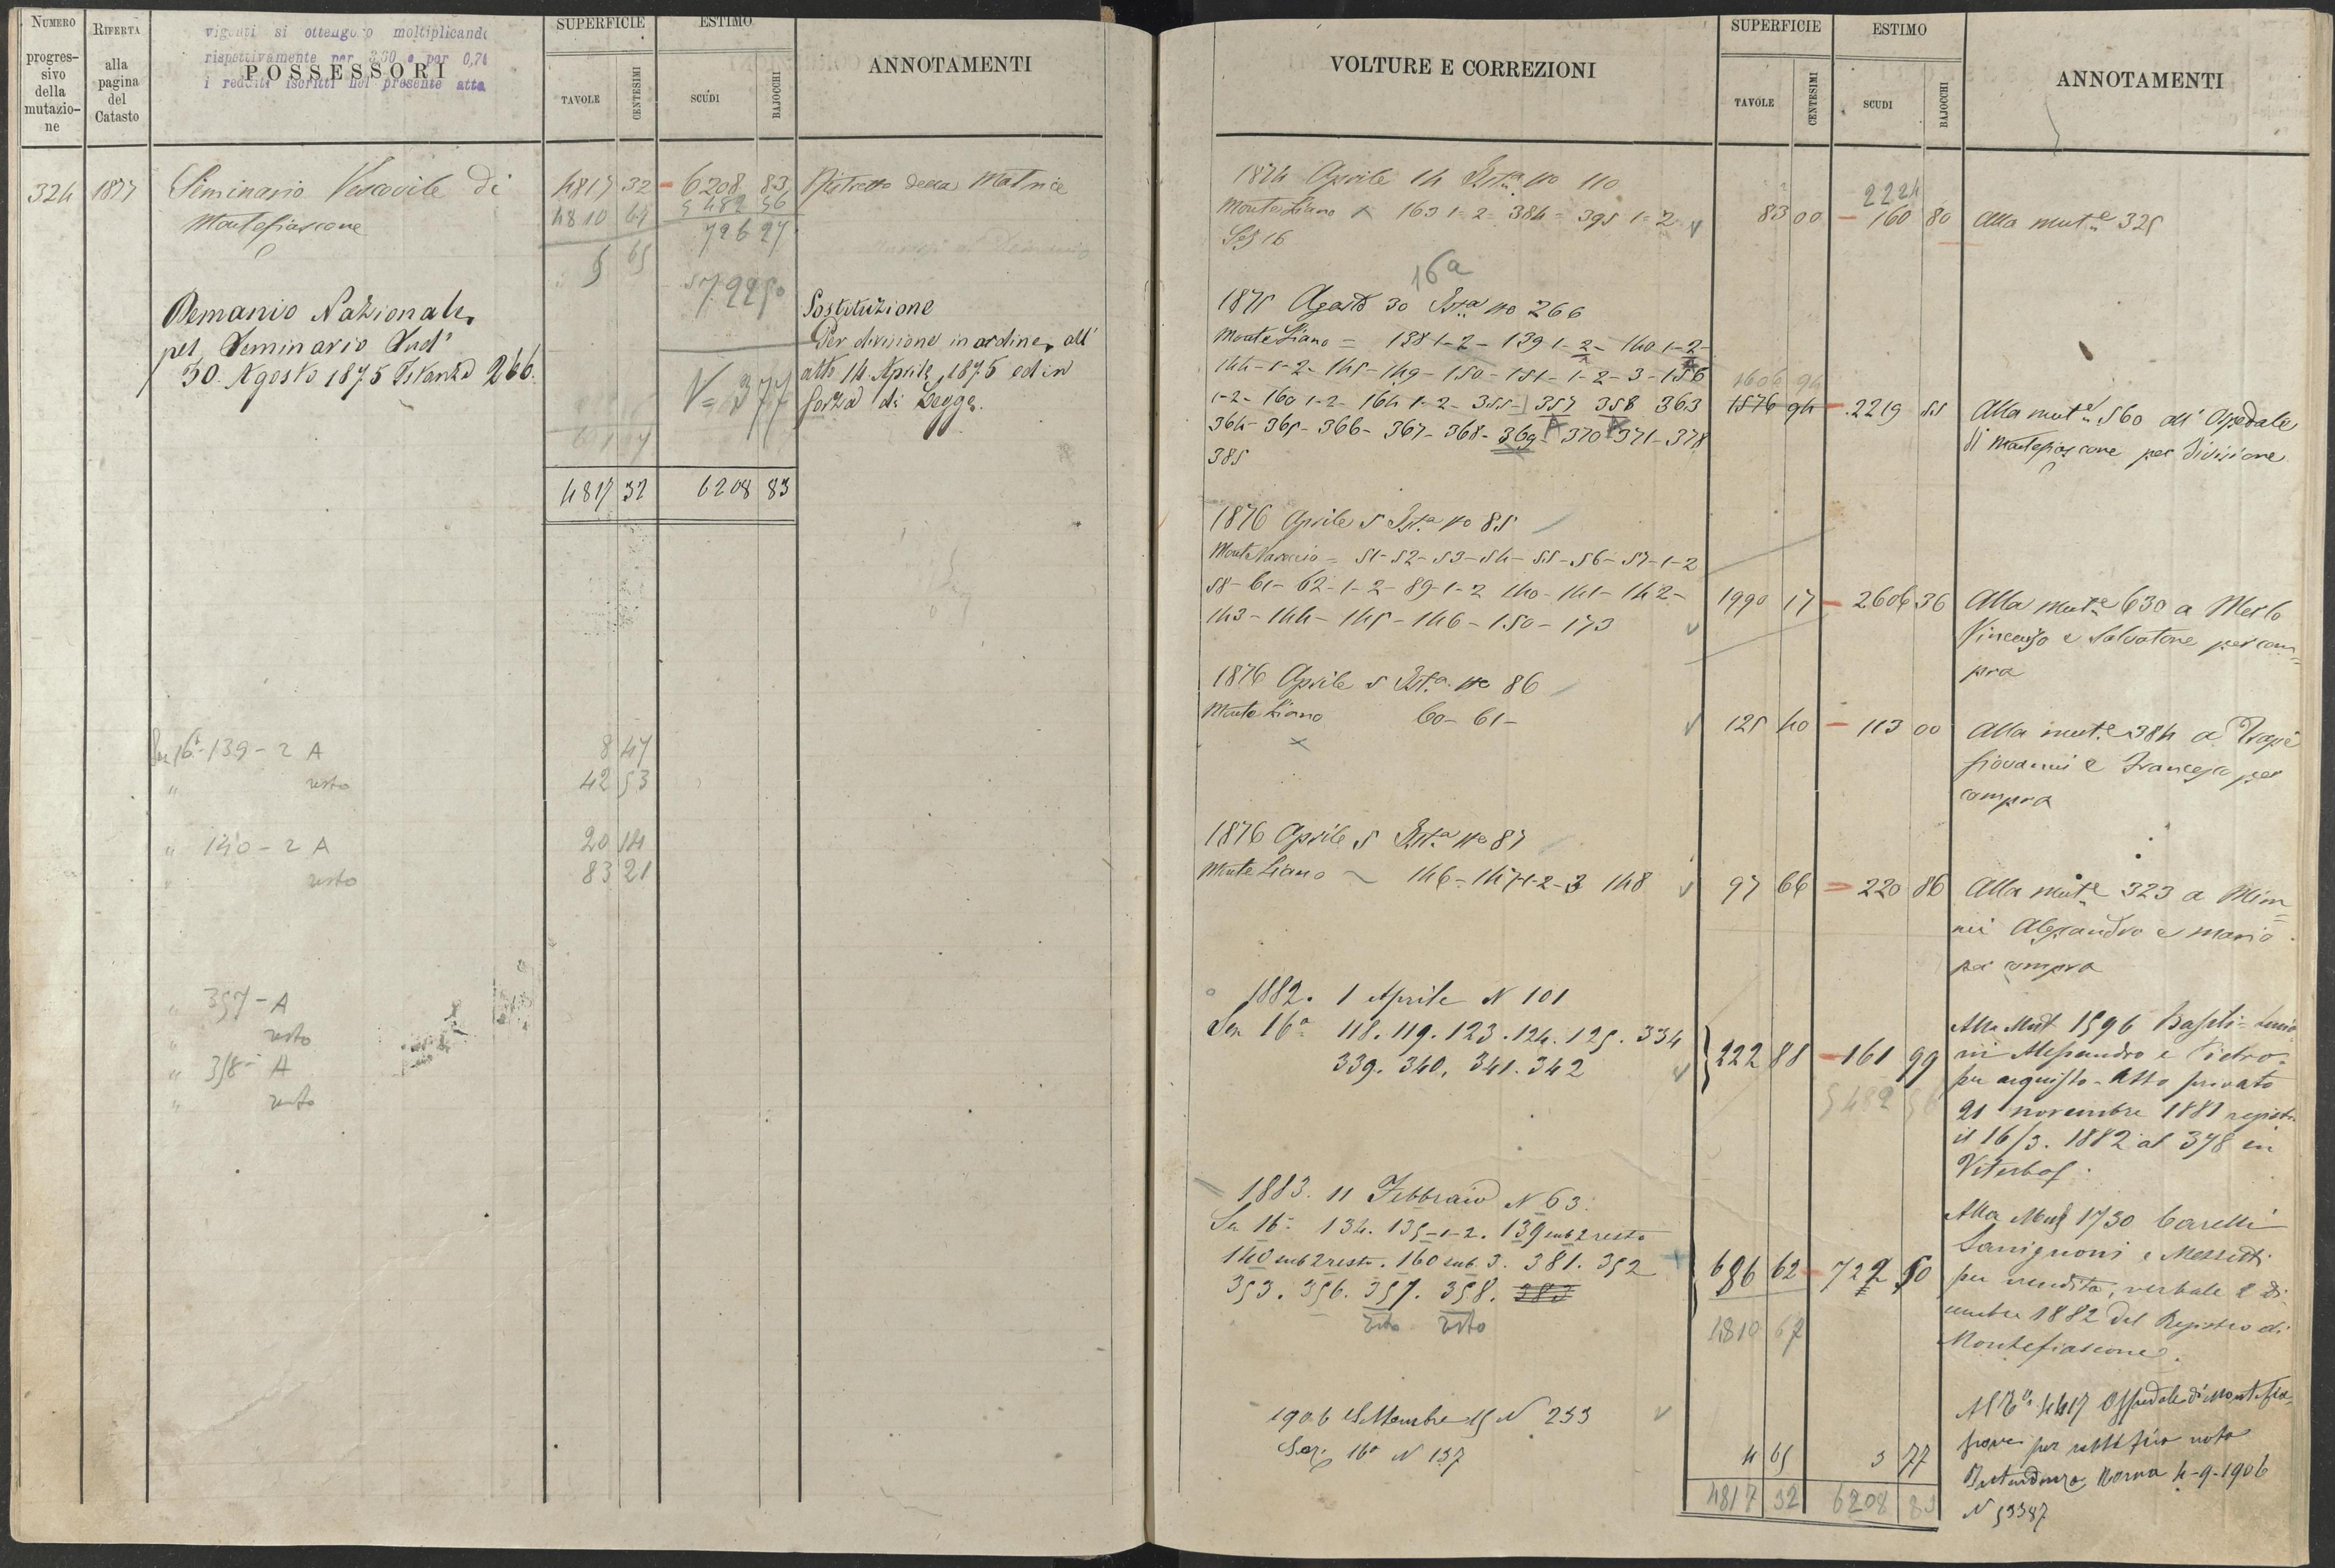 NUMERO
progres-
sivo
della
mutazio-
ne
RIFERTA
alla
pagina
del
Catasto
vigenti si ottengono moltiplicando
rispettivamente per 3,60 e per 0,74
i redditi iscritti nel presente atto
POSSESSORI
SUPERFICIE
TAVOLE
CENTESIMI
ESTIMO
SCUDI
BAJOCCHI
ANNOTAMENTI
324 1877 Seminario Vescovile di 4817 32 6208 83 Ristretto della Matrice
Montefiascone 4810 67 5482 56
726 27
6 65
Demanio Nazionale
pel Seminario Sud°
30. Agosto 1875 Istanza 266.
Sostituzione
Per divisione in ordine all'
atto 14 Aprile 1875 ed in
forza di Legge.
N= 377
4817 32 6208 83
Sez 16ª-139-2 A 8 47
" resto 42 53
" 140-2 A 20 14
" resto 83 21
" 357-A
" resto
" 358-A
" resto
VOLTURE E CORREZIONI
SUPERFICIE
TAVOLE
CENTESIMI
ESTIMO
SCUDI
BAJOCCHI
ANNOTAMENTI
1874 Aprile 14 Ist.ª No 110
2224
Monte Liano 163 1-2- 384- 395 1-2 83 00 160 80 Alla mut.e 325
Sez 16
16ª
1875 Agosto 30 Ist.ª No 266
Monte Liano = 138 1-2- 139 1-2- 140 1-2-
144-1-2- 145-149-150-151-1-2-3-156 1606 94
1-2- 160 1-2- 164 1-2- 355- 357 358 363 1576 94 2219 55 Alla mut.e 560 all' Ospedale
364- 365- 366- 367- 368- 369- 370- 371- 378 di Montefiascone per divisione
385
1876 Aprile 5 Ist.ª No 85
51-52-53-54-55-56-57-1-2
58-61-62-1-2-89-1-2 140-141-142- 1990 17 2606 36 Alla mut.e 630 a Merlo
143-144-145-146-150-173 Vincenzo e Salvatore per com=
pra
1876 Aprile 5 Ist.ª No 86
Monte Liano 60-61- 125 40 113 00 Alla mut.e 384 a Trapè
Giovanni e Francesco per
compra
1876 Aprile 5 Ist.ª No 87
Monte Liano 146-147-1-2-3 148 97 66 220 86 Alla mut.e 323 a Mim=
mi Alessandro e Mario
per compra
1882. 1 Aprile N 101
Sez 16ª 118.119.123.124.125.334
339.340.341.342 222 88 161 99
5482 56
Alla Mut 1596
ni Alessandro e Pietro
per acquisto-Atto privato
21 novembre 1881 registr.
il 16/3. 1882 al 378 in
Viterbo
1883. 11 Febbraio N 63.
Sez 16ª 134. 135-1-2. 139 sub 2 resto
140 sub 2 resto. 160 sub. 3. 381. 352 686 62 722 50
353. 356. 357. 358. 383
resto resto
4810 67
Alla Mut 1730 Carelli
Lanignoni e Mezzetti
per vendita, verbale 2 di-
cembre 1882 del Registro di
Montefiascone.
1906 Settembre 15 N 253
Sez. 16ª N 137 4 65 3 77
4817 32 6208 83
4417 Ospedale di Montefia-
scone per rettifica nota
Intendenza Roma 4-9-1906
N 53387